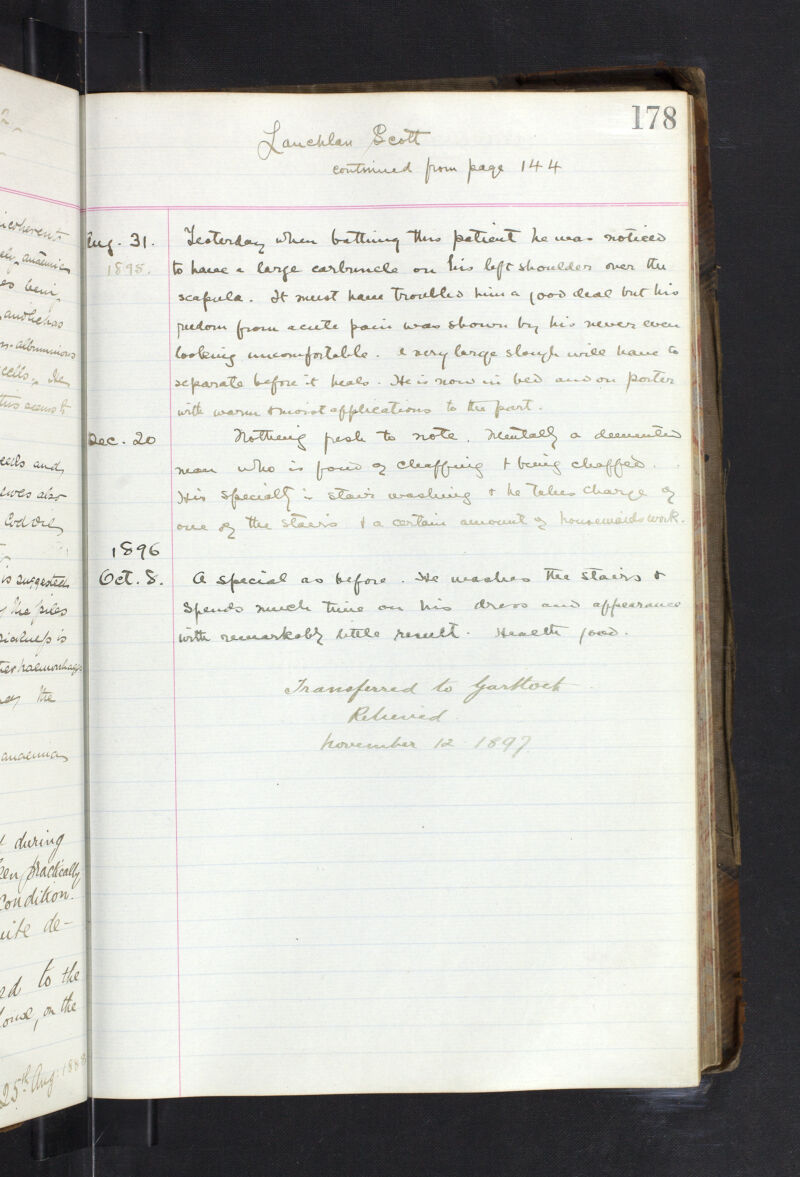 178
Lauchlan Scott
continued from page 144
Aug. 31. Yesterday when bathing this patient he was noticed
1895. to have a large carbuncle on his left shoulder over the
scapula. It must have troubled him a good deal but his
freedom from acute pain was shown by his never even
looking uncomfortable. A very large slough will have to
separate before it heals. He is now in bed and on porter
with warm & moist applications to the part.
Dec. 20 Nothing fresh to note. Mentally a demented
man who is fond of chaffing & being chaffed.
His specialty is stair washing & he takes charge of
one of the stairs & a certain amount of housemaids work.
1896
Oct. 8. A special as before. He washes the stairs &
spends much time on his dress and appearance
with remarkably little result. Health good.
Transferred to Gartloch
Relieved
November 12 1897
incoherent
and he has
cells. He
this seems to
and
is suggested
the piles
the
during
practically
condition.
de-
to the
on the
25th Aug. 1888